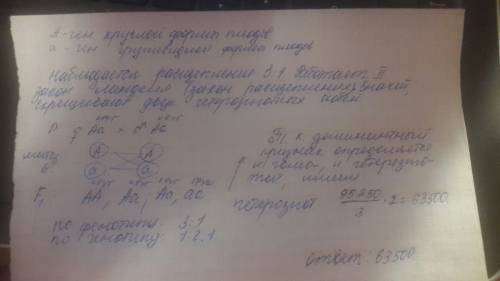 А-ген круглой формы плодов
а - ген грушевидной формы плодов
Наблюдается расщепление 3:1. Работает II
закон Менделя (закон расщепления) значит
скрещивают двух гетерозиготных
круг круг
P ♀ Aa × ♂ Aa
A A
a a
круг круг круг груш
F1 AA, Aa, Aa, aa
по фенотипу 3:1
по генотипу 1:2:1.
Т.к. доминантный
признак определяется
и гомо-, и гетерозиго-
той, имеем
гетерозигот 95250/3 · 2 = 63500
Ответ: 63500